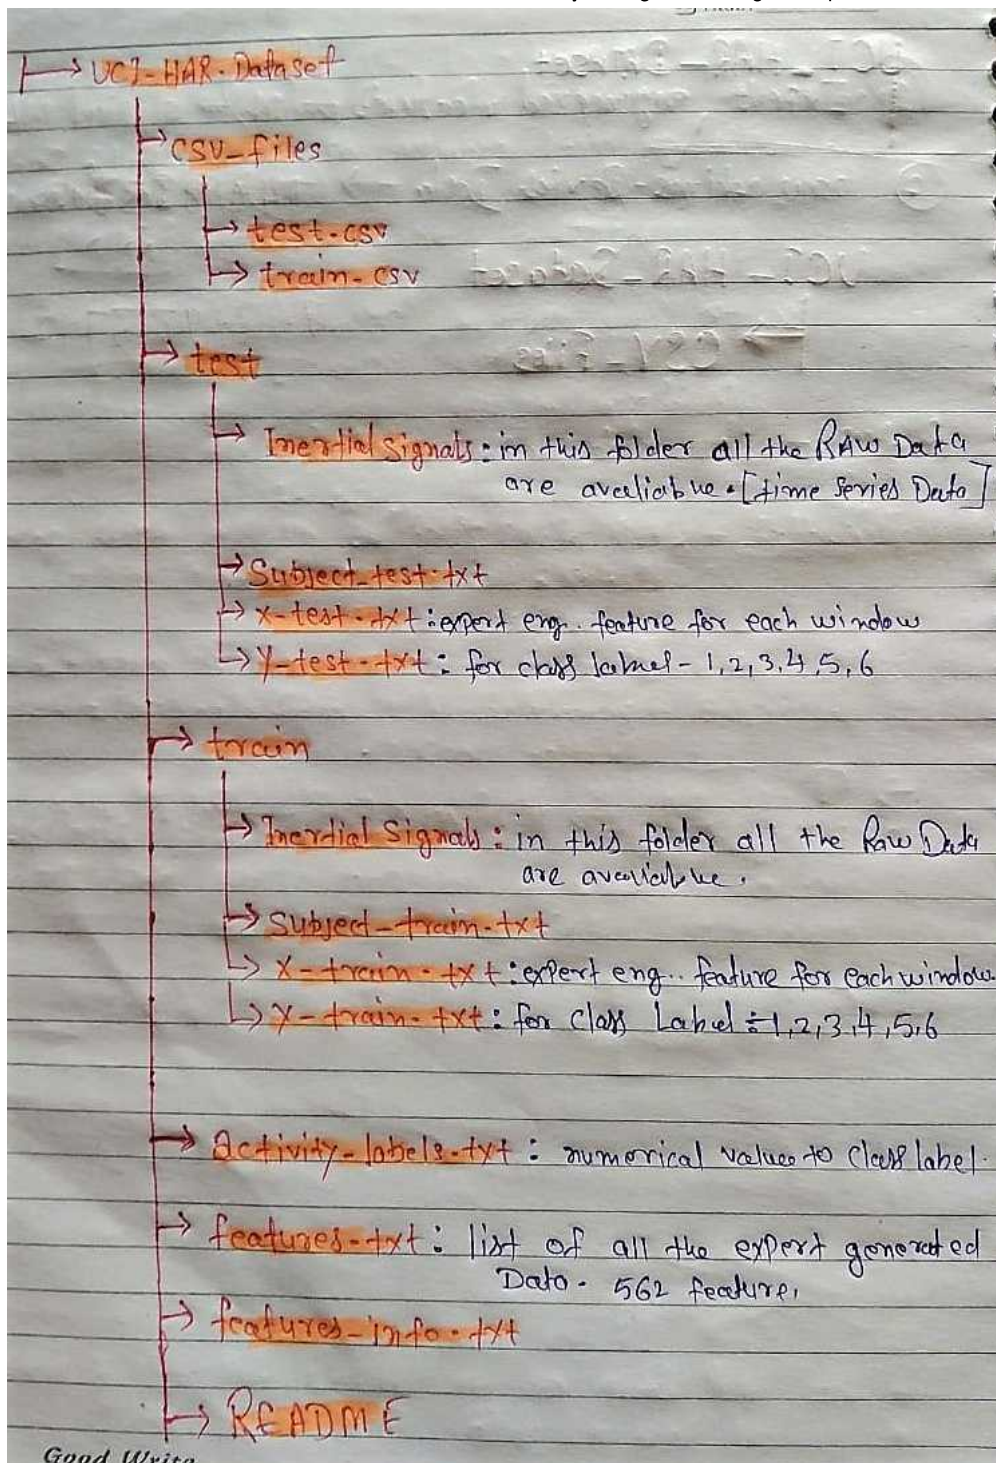 UCI-HAR-Dataset
CSV-files
test.csv
train.csv
test
Inertial Signals : in this folder all the RAW Data
are avaliabue. [time Series Data]
Subject-test.txt
X-test.txt : expert eng. feature for each window
Y-test.txt : for class label - 1,2,3,4,5,6
train
Inertial Signals : in this folder all the Raw Data
are avaliabue.
Subject-train.txt
X-train.txt : expert eng.. feature for each window.
Y-train.txt : for Class Label :- 1,2,3,4,5,6
activity-labels.txt : numerical values to Class label.
features.txt : list of all the expert generated
Data. 562 feature,
features-info.txt
README
Good Write